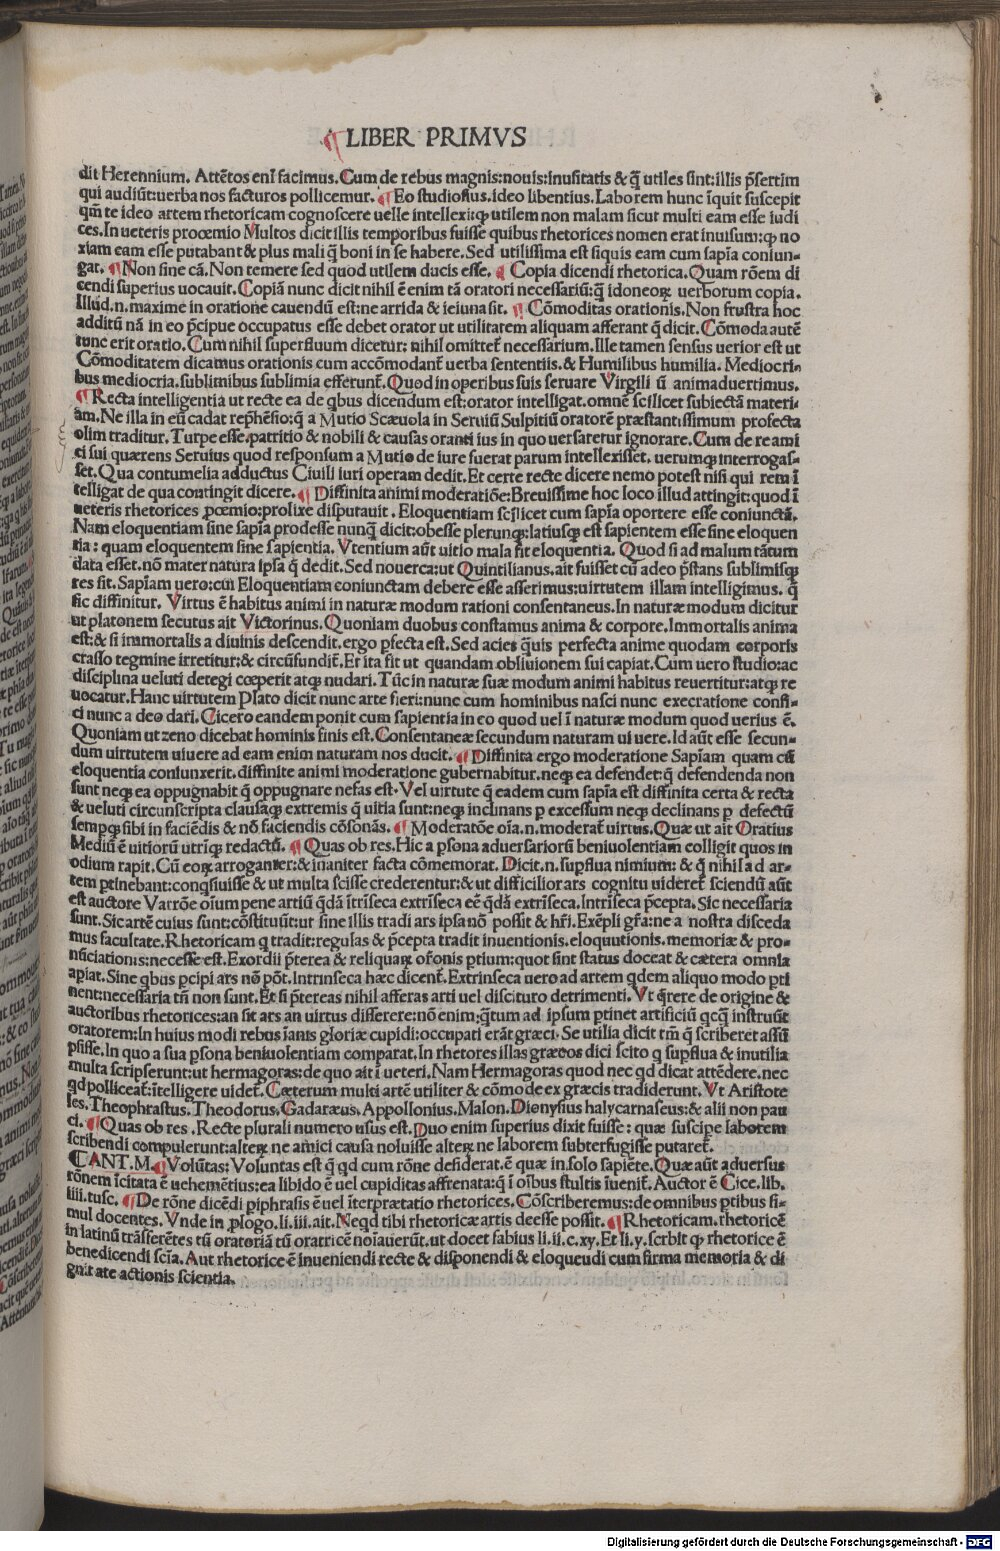 ¶ LIBER PRIMVS
dit Herennium. Attētos enī facimus. Cum de rebus magnis: nouis: inusitatis & q̄ utiles sint: illis p̄sertim
qui audiūt: uerba nos facturos pollicemur. ¶ Eo studiosius. ideo libentius. Laborem hunc īquit suscepit
qm̄ te ideo artem rhetoricam cognoscere uelle intellexitq; utilem non malam sicut multi eam esse iudi
ces. In ueteris prooemio Multos dicit illis temporibus fuisse quibus rhetorices nomen erat inuisum: qp no
xiam eam esse putabant & plus mali q̄ boni in se habere. Sed utilissima est siquis eam cum sapīa coniun-
gat. ¶ Non sine cā. Non temere sed quod utilem ducis esse. ¶ Copia dicendi rhetorica. Quam rōem di
cendi superius uocauit. Copiā nunc dicit nihil ē enim tā oratori necessariū: q̄ idoneoꝝ uerborum copia.
Illud .n. maxime in oratione cauendū est: ne arrida & ieiuna sit. ¶ Cōmoditas orationis. Non frustra hoc
additū nā in eo p̄cipue occupatus esse debet orator ut utilitatem aliquam afferant q̄ dicit. Cōmoda autē
tunc erit oratio. Cum nihil superfluum dicetur: nihil omittet᷑ necessarium. Ille tamen sensus uerior est ut
Cōmoditatem dicamus orationis cum accōmodant᷑ uerba sententiis. & Humilibus humilia. Mediocri-
bus mediocria. sublimibus sublimia efferunt᷑. Quod in operibus suis seruare Virgiliū animaduertimus.
¶ Recta intelligentia ut recte ea de qbus dicendum est: orator intelligat. omnē scilicet subiectā materi-
am. Ne illa in eū cadat reph̄esio: q̄ a Mutio Scæuola in Seruiū Sulpitiū oratorē præstantissimum profecta
olim traditur. Turpe esse. patritio & nobili & causas oranti ius in quo uersaretur ignorare. Cum de re ami
ci sui quærens Seruius quod responsum a Mutio de iure fuerat parum intellexisset. uerumq; interrogas-
set. Qua contumelia adductus Ciuili iuri operam dedit. Et certe recte dicere nemo potest nisi qui rem ī
telligat de qua contingit dicere. ¶ Diffinita animi moderatiōe: Breuissime hoc loco illud attingit: quod ī
ueteris rhetorices ꝓœmio: prolixe disputauit. Eloquentiam scilicet cum sapīa oportere esse coniunctā.
Nam eloquentiam sine sapīa prodesse nunq̄ dicit: obesse plerunq;: latiusq; est sapientem esse sine eloquen
tia: quam eloquentem sine sapientia. Vtentium aūt uitio mala fit eloquentia. Quod si ad malum tātum
data esset. nō mater natura ipsa q̄ dedit. Sed nouerca: ut Quintilianus. ait fuisset cū adeo p̄stans sublimisq;
res sit. Sapīam uero: cū Eloquentiam coniunctam debere esse asserimus: uirtutem illam intelligimus. q̄
sic diffinitur. Virtus ē habitus animi in naturæ modum rationi consentaneus. In naturæ modum dicitur
ut platonem secutus ait Victorinus. Quoniam duobus constamus anima & corpore. Immortalis anima
est: & si immortalis a diuinis descendit. ergo pfecta est. Sed acies q̄uis perfecta anime quodam corporis
crasso tegmine irretitur: & circūfundit᷑. Et ita fit ut quandam obliuionem sui capiat. Cum uero studio: ac
disciplina ueluti detegi cœperit atq; nudari. Tūc in naturæ suæ modum animi habitus reuertitur: atq; re
uocatur. Hanc uirtutem Plato dicit nunc arte fieri: nunc cum hominibus nasci nunc execratione confi-
ci nunc a deo dari. Cicero eandem ponit cum sapientia in eo quod uel ī naturæ modum quod uerius ē.
Quoniam ut zeno dicebat hominis finis est. Consentaneæ secundum naturam ui uere. Id aūt esse secun-
dum uirtutem uiuere ad eam enim naturam nos ducit. ¶ Diffinita ergo moderatione Sapīam quam cū
eloquentia coniunxerit. diffinite animi moderatione gubernabitur. neq; ea defendet: q̄ defendenda non
sunt neq; ea oppugnabit q̄ oppugnare nefas est. Vel uirtute q̄ eadem cum sapīa est diffinita certa & recta
& ueluti circunscripta clausaq; extremis q̄ uitia sunt: neq; inclinans p excessum neq; declinans p defectū
sempq; sibi in faciēdis & nō faciendis cōsonās. ¶ Moderatōe oīa .n. moderat᷑ uirtus. Quæ ut ait Oratius
Mediū ē uitiorū utrīq; redactū. ¶ Quas ob res. Hic a psona aduersariorū beniuolentiam colligit quos in
odium rapit. Cū eoꝝ arroganter: & inaniter facta cōmemorat. Dicit .n. supflua nimium: & q̄ nihil ad ar-
tem ptinebant: conqsiuisse & ut multa scisse crederentur: & ut difficilior ars cognitu uideret᷑ sciendū aūt
est auctore Varrōe oīsum pene artiū q̄dā ītriseca extriseca eē q̄dā extriseca. Intriseca p̄cepta. Sic necessaria
sunt. Sic artē cuius sunt: cōstituūt: ut sine illis tradi ars ipsa nō possit & hr̄i. Exēpli gr̄a: ne a nostra disceda
mus facultate. Rhetoricam q tradit: regulas & p̄cepta tradit inuentionis. eloquutionis. memoriæ & pro-
nūciationis: necesse est. Exordii p̄terea & reliquaꝝ or̄onis ptium: quot sint status doceat & cætera omnia
apiat. Sine qbus pcipi ars nō pōt. Intrinseca hæc dicent᷑. Extrinseca uero ad artem qdem aliquo modo pti
nent: necessaria tn̄ non sunt. Et si p̄tereas nihil afferas arti uel discituro detrimenti. Vt q̄rere de origine &
auctoribus rhetorices: an sit ars an uirtus differere: nō enim: q̄tum ad ipsum ptinet artificiū qcq̄ instruūt
oratorem: In huius modi rebus īanis gloriæ cupidi: occupati erāt græci. Se utilia dicit tm̄ q̄ scriberet assū
psisse. In quo a sua psona beniuolentiam comparat. In rhetores illas græcos dici scito q supflua & inutilia
multa scripserunt: ut hermagoras: de quo ait ī ueteri. Nam Hermagoras quod nec qd dicat attēdere. nec
qd polliceat᷑: ītelligere uidet᷑. Cæterum multi artē utiliter & cōmode ex græcis tradiderunt. Vt Aristote
les. Theophrastus. Theodorus. Gadaræus. Appollonius. Malon. Dionysius halycarnaseus: & alii non pau
ci. ¶ Quas ob res. Recte plurali numero usus est. Duo enim superius dixit fuisse: quæ suscipe laborem
scribendi compulerunt: alteꝝ ne amici causa noluisse alteꝝ ne laborem subterfugisse putaret᷑.
CANT. M. ¶ Volūtas: Voluntas est q̄ qd cum rōne desiderat. ē quæ in solo sapiēte. Quæ aūt aduersus
rōnem īcitata ē uehemētius: ea libido ē uel cupiditas affrenata: q̄ ī oībus stultis īuenit᷑. Auctor ē Cice. lib.
iiii. tusc. ¶ De rōne dicēdi piphrasis ē uel īterprætatio rhetorices. Cōscriberemus: de omnibus ptibus si-
mul docentes. Vnde in ꝓlogo. li. iii. ait. Neqd tibi rhetoricæ artis deesse possit. ¶ Rhetoricam. rhetoricē
in latinū trāsferētes tū oratoriā tū oratricē noīauerūt. ut docet fabius li. ii. c. xy. Et li. y. scrbit qp rhetorice ē
benedicendi scīa. Aut rhetorice ē inueniendi recte & disponendi & eloquendi cum firma memoria & di
gnitate actionis scientia.
Digitalisierung gefördert durch die Deutsche Forschungsgemeinschaft - DFG